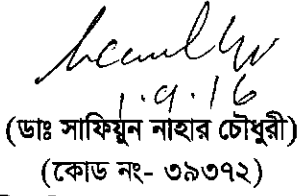 1.9.16
(ডাঃ সাফিয়ুন নাহার চৌধুরী)
(কোড নং- ৩৯৩৭২)